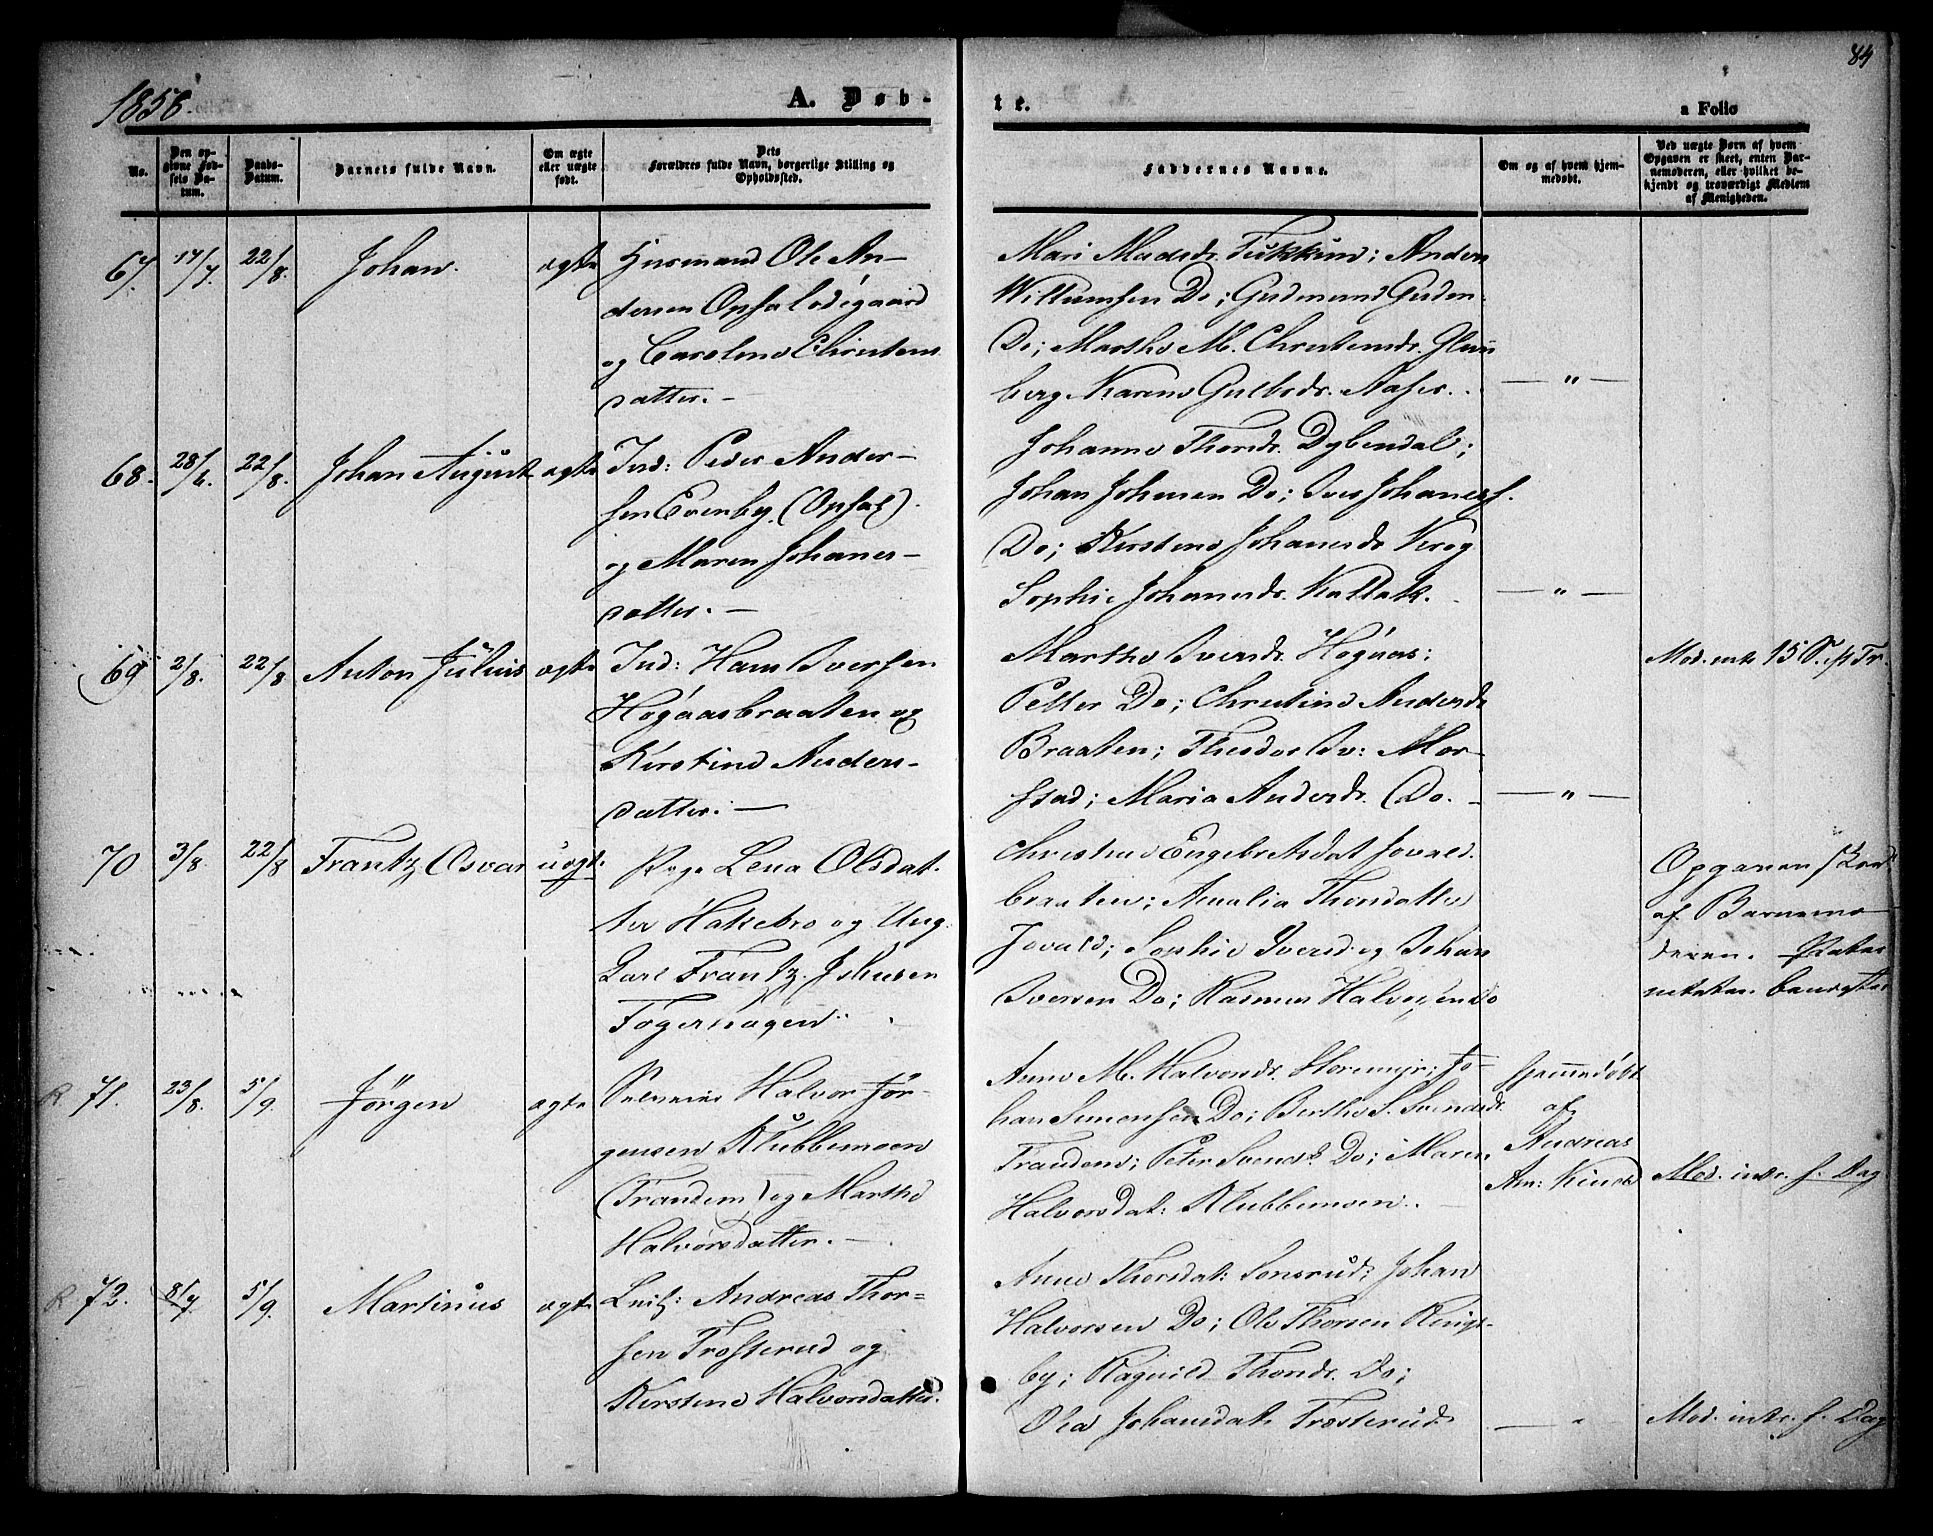 84
1856.
A. Døb-
te.
a Folio
No.
Den opgivne Fødsels Datum.
Daabs-Datum.
Barnets fulde Navn.
Om ægte eller uægte født.
Dets Forældres fulde Navn, borgerlige Stilling og Opholdssted.
Faddernes Navne.
Om og af hvem hjemmedøbt.
Ved uægte Børn af hvem Opgaven er skeet, enten Barnemoderen, eller hvilket bekjendt og troværdigt Medlem af Menigheden.
67. 17/7. 22/8. Johan. ægte Husmand Ole An-
dersen Opsalødegaard
og Caroline Christens
datter. —
Mari Madsdr. ; Anders
Willumsen Do; Gudmund Guden-
Do; Marthe M. Christensdr. 
berg Karen Gulbrdr. Aaser. — " —
68. 28/6. 22/8. Johan August ægte Ind: Peder Ander-
sen Evenby (Opsal)
og Maren Johanes-
datter. —
Johanne Thorsdr. Dybendal;
Johan Johnsen Do; Iver Johanesf.
Do; Kirstine Johanesdr Krog
Sophie Johanesdr. Kallak. — " —
69 2/8. 22/8 Anton Julius ægte Ind: Hans Iversen
Høgaasbraaten og
Kirstine Anders-
datter: —
Marthe Iversdr. Høgaas;
Petter Do; Christine Andersdr
Braaten; Theodor Iv: Mor-
stad; Maria Andersdr. Do. — " —
Mod. intr. 15 S. e/ Tr.
70 3/8. 22/8 Frantz Osvar uægte. Pige Lena Olsdat-
ter Hakebro og Ung.
Carl Frantz Johnsen
Fogerhagen.
Christine Engebretsdat Jovald-
braaten; Amalia Thorsdatter
Jovald; Sophie Iversd. og Johan
Iversen Do; Rasmus Halvorsen Do
Opgaven skeed
af Barnemo-
deren. Pater-
nitaten benegtes
R 71. 23/8. 5/9. Jörgen ægte Selveier Halvor Jör-
gensen Klubbemoen
(Trandem) og Marthe
Halvorsdatter. —
Anne M. Halvorsdr. Storemyr; Jo-
han Simensen Do; Berthe S. Svendsdr.
Trandem; Peter Svends. Do; Maren
Halvorsdat: Klubbemoen.
Hjemmedøbt
af
Andreas
Am: Kinod
Mod. intr. s. Dag
R 72. 8/7 5/9. Martinus ægte Leil: Andreas Thor-
sen Trosterud og
Kirstine Halvorsdatter.
Anne Thorsdat: Sonsrud; Johan
Halvorsen Do; Ole Thorsen Rings-
by; Ragnild Thorsdr. Do;
Olea Johansdat: Trosterud. — " —
Mod. intr. s. Dag